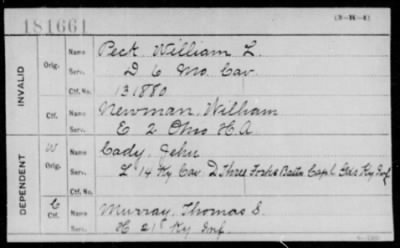 181661
(3-M-4)
INVALID
Orig.
Name Peck William L.
Serv. D 6 Mo. Cav.
Ctf. No. 131880
Ctf.
Name Newman, William
Serv. E 2 Ohio H.A.
DEPENDENT
W
Orig.
Name Cady, John
Serv. L 14 Ky Cav. D Three Forks Battn Capl Ky Inf
Ctf. No.
C
Ctf.
Name Murray, Thomas S.
Serv. H 21st Ky Inf.